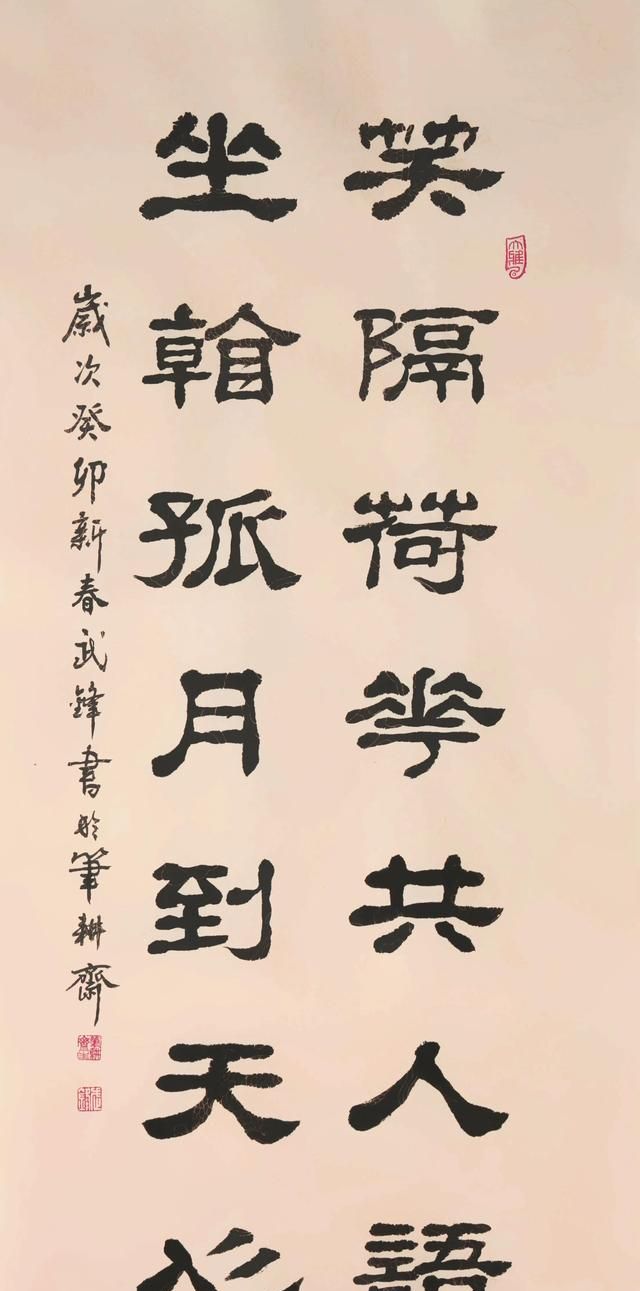 笑隔荷花共人語
坐看孤月到天心
歲次癸卯新春武鋒書於筆耕齋